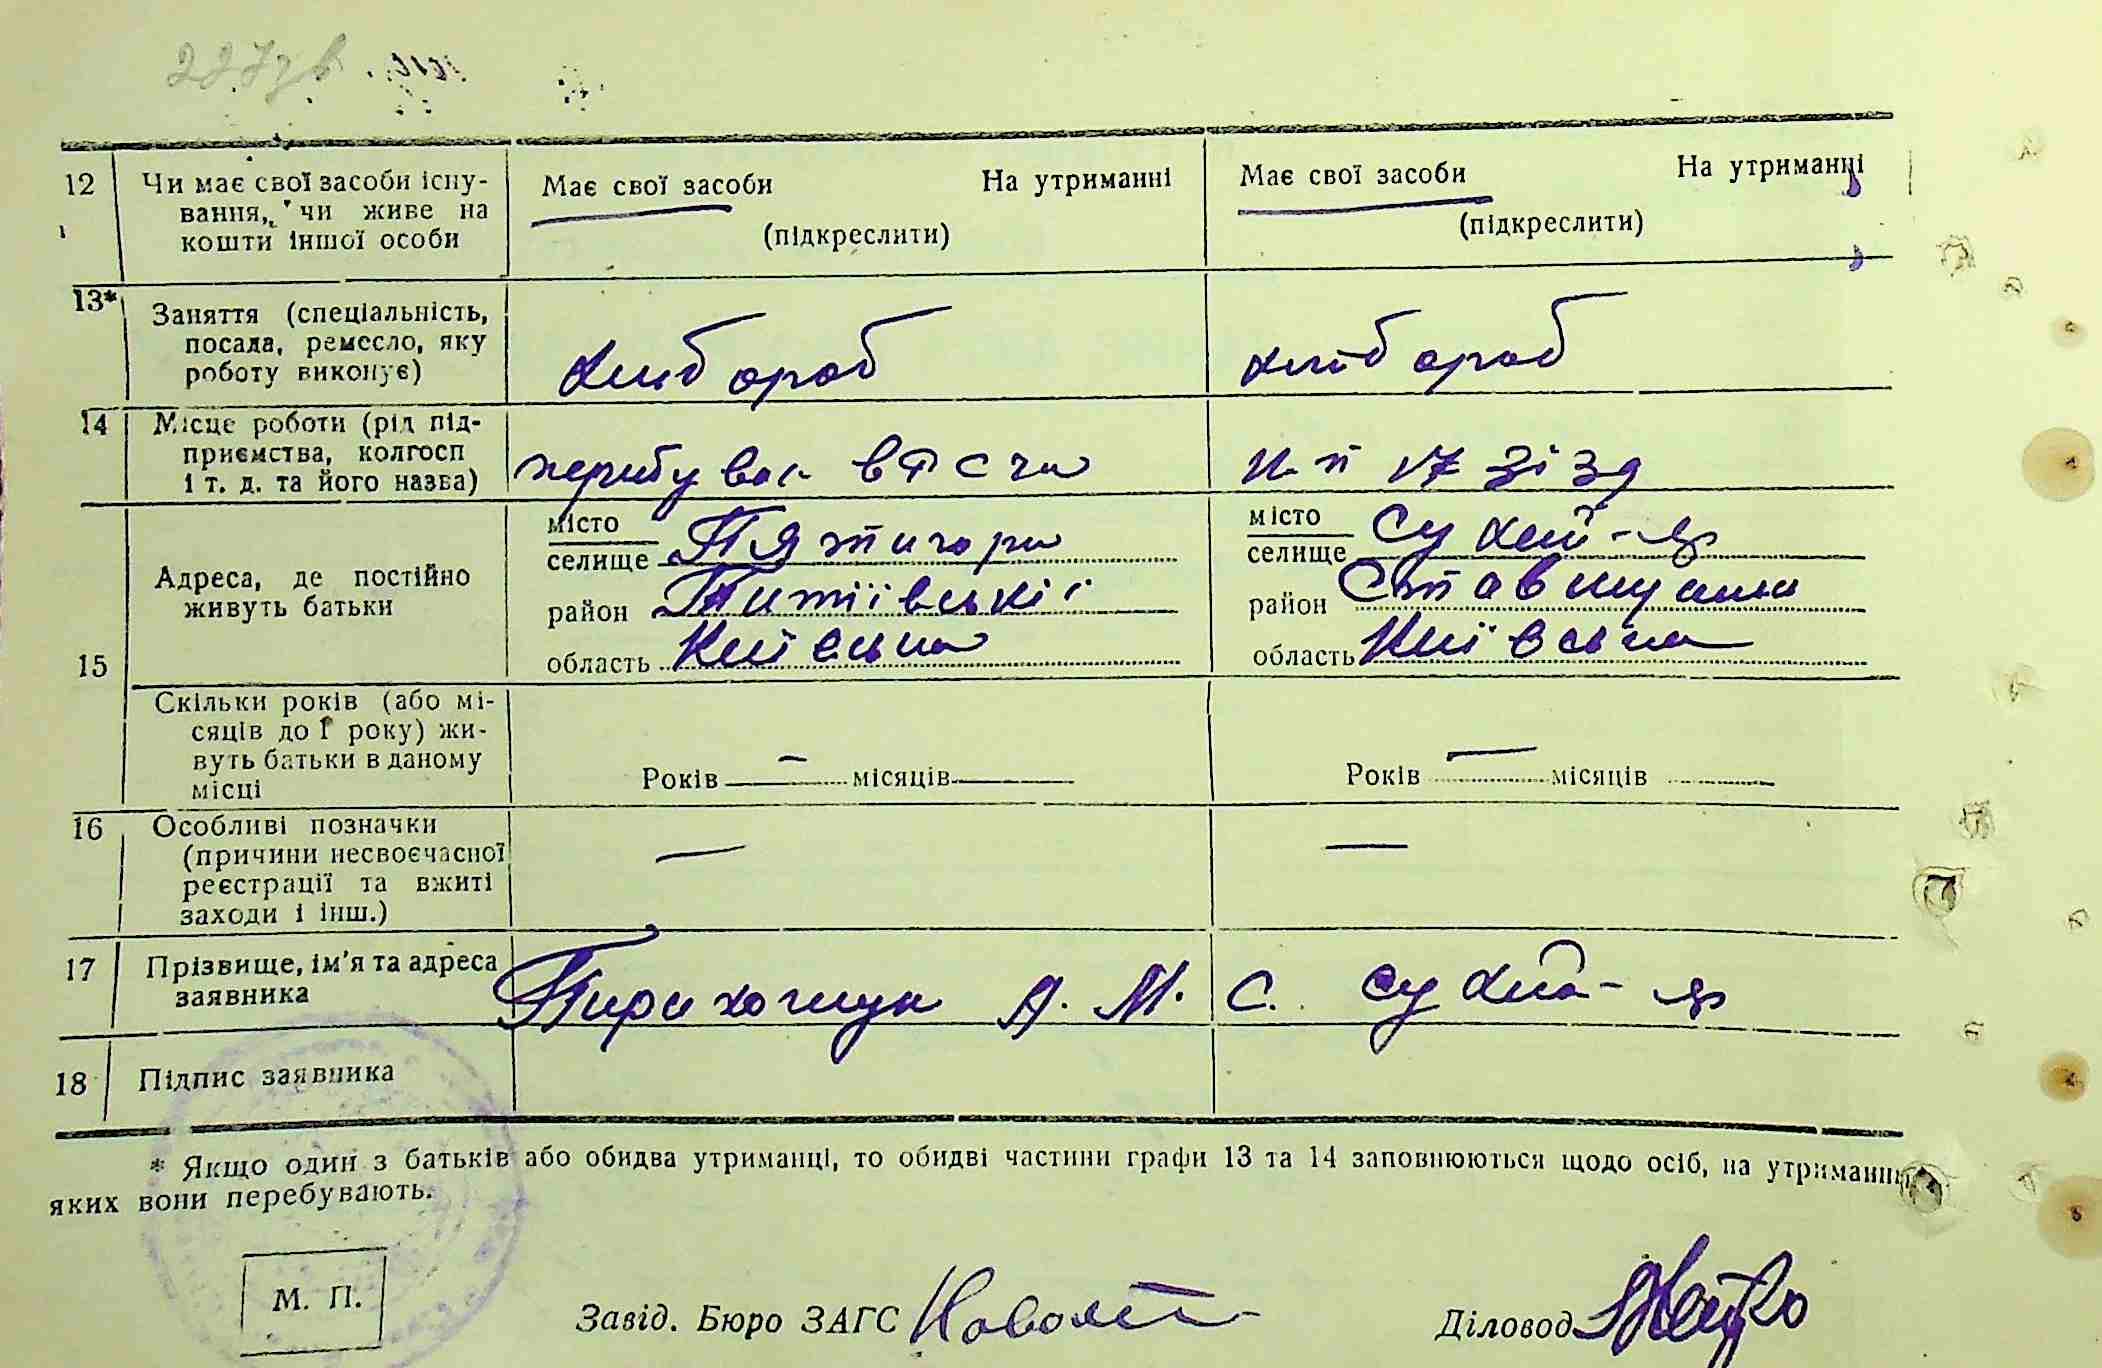 227зв
12 Чи має свої засоби існу- Має свої засоби На утриманні Має свої засоби На утриманні
вання, чи живе на (підкреслити) (підкреслити)
кошти іншої особи
13* Заняття (спеціальність, хлібороб хлібороб
посада, ремесло, яку
роботу виконує)
14 Місце роботи (рід під-
приємства, колгосп перебуває в 17 зізд
і т. д. та його назва)
місто П'ятигори місто Сухий-яр
селище селище
Адреса, де постійно район Титіївські район Ставищан
живуть батьки
15 область Київська область Київська
Скільки років (або мі-
сяців до 1 року) жи-
вуть батьки в даному Років — місяців Років — місяців
місці
16 Особливі позначки — —
(причини несвоєчасної
реєстрації та вжиті
заходи і інш.)
17 Прізвище, ім'я та адреса А. М. с. Сухий-яр
заявника
18 Підпис заявника
* Якщо один з батьків або обидва утриманці, то обидві частини графи 13 та 14 заповнюються щодо осіб, на утриманні
яких вони перебувають.
М. П.
Завід. Бюро ЗАГС Діловод